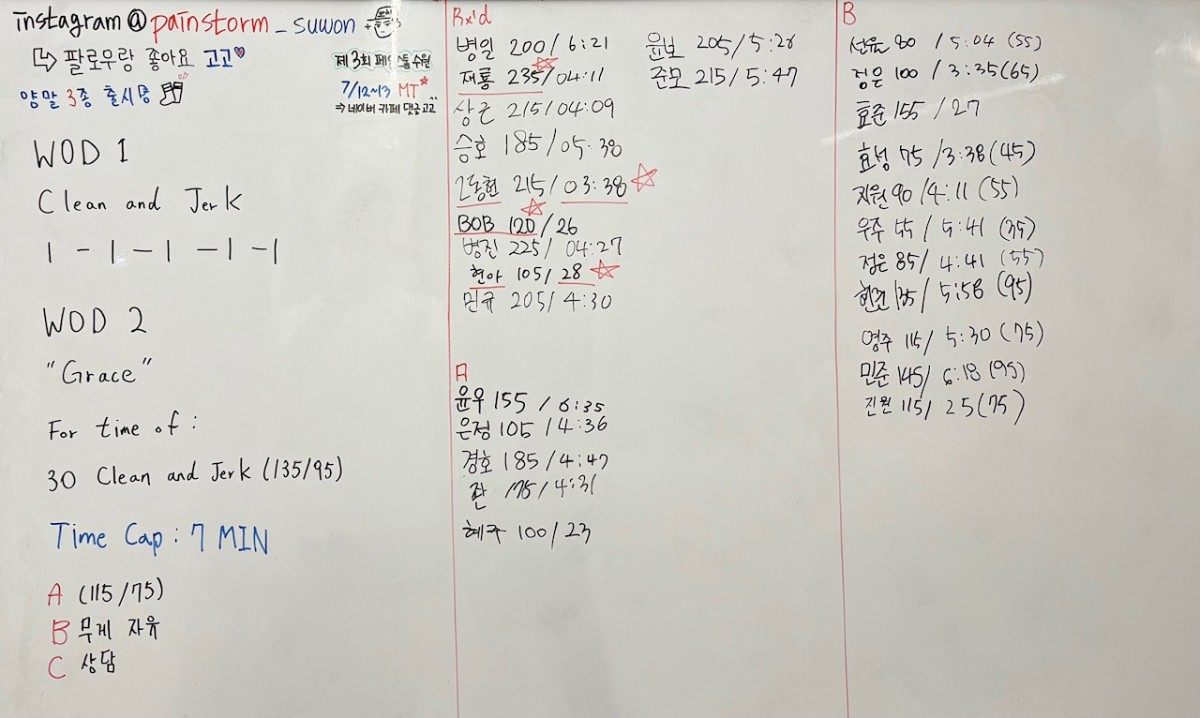 instagram@painstorm_suwon
↳ 팔로우랑 좋아요 고고♥
양말 3종 출시중
제3회 페인스톰수원
7/12~13 MT
⇒ 네이버 카페 댓글 고고
WOD 1
Clean and Jerk
1 - 1 - 1 - 1 - 1
WOD 2
"Grace"
For time of :
30 Clean and Jerk (135/95)
Time Cap : 7 MIN
A (115/75)
B 무게 자유
C 상담
Rx'd
병일 200/6:21
재룡 235/04:11
상근 215/04:09
승호 185/05:38
동현 215/03:38
BOB 120/26
병진 225/04:27
현아 105/28
민규 205/4:30
윤보 205/5:28
준모 215/5:47
A
윤우 155/6:35
은정 105/4:36
경호 185/4:47
175/4:31
혜주 100/23
B
선유 80/5:04 (55)
정은 100/3:35 (65)
효준 155/27
효성 75/3:38 (45)
지원 90/4:11 (55)
우주 55/5:41 (35)
정은 85/4:41 (55)
135/5:58 (95)
영주 115/5:30 (75)
민준 145/6:18 (95)
진원 115/25 (75)